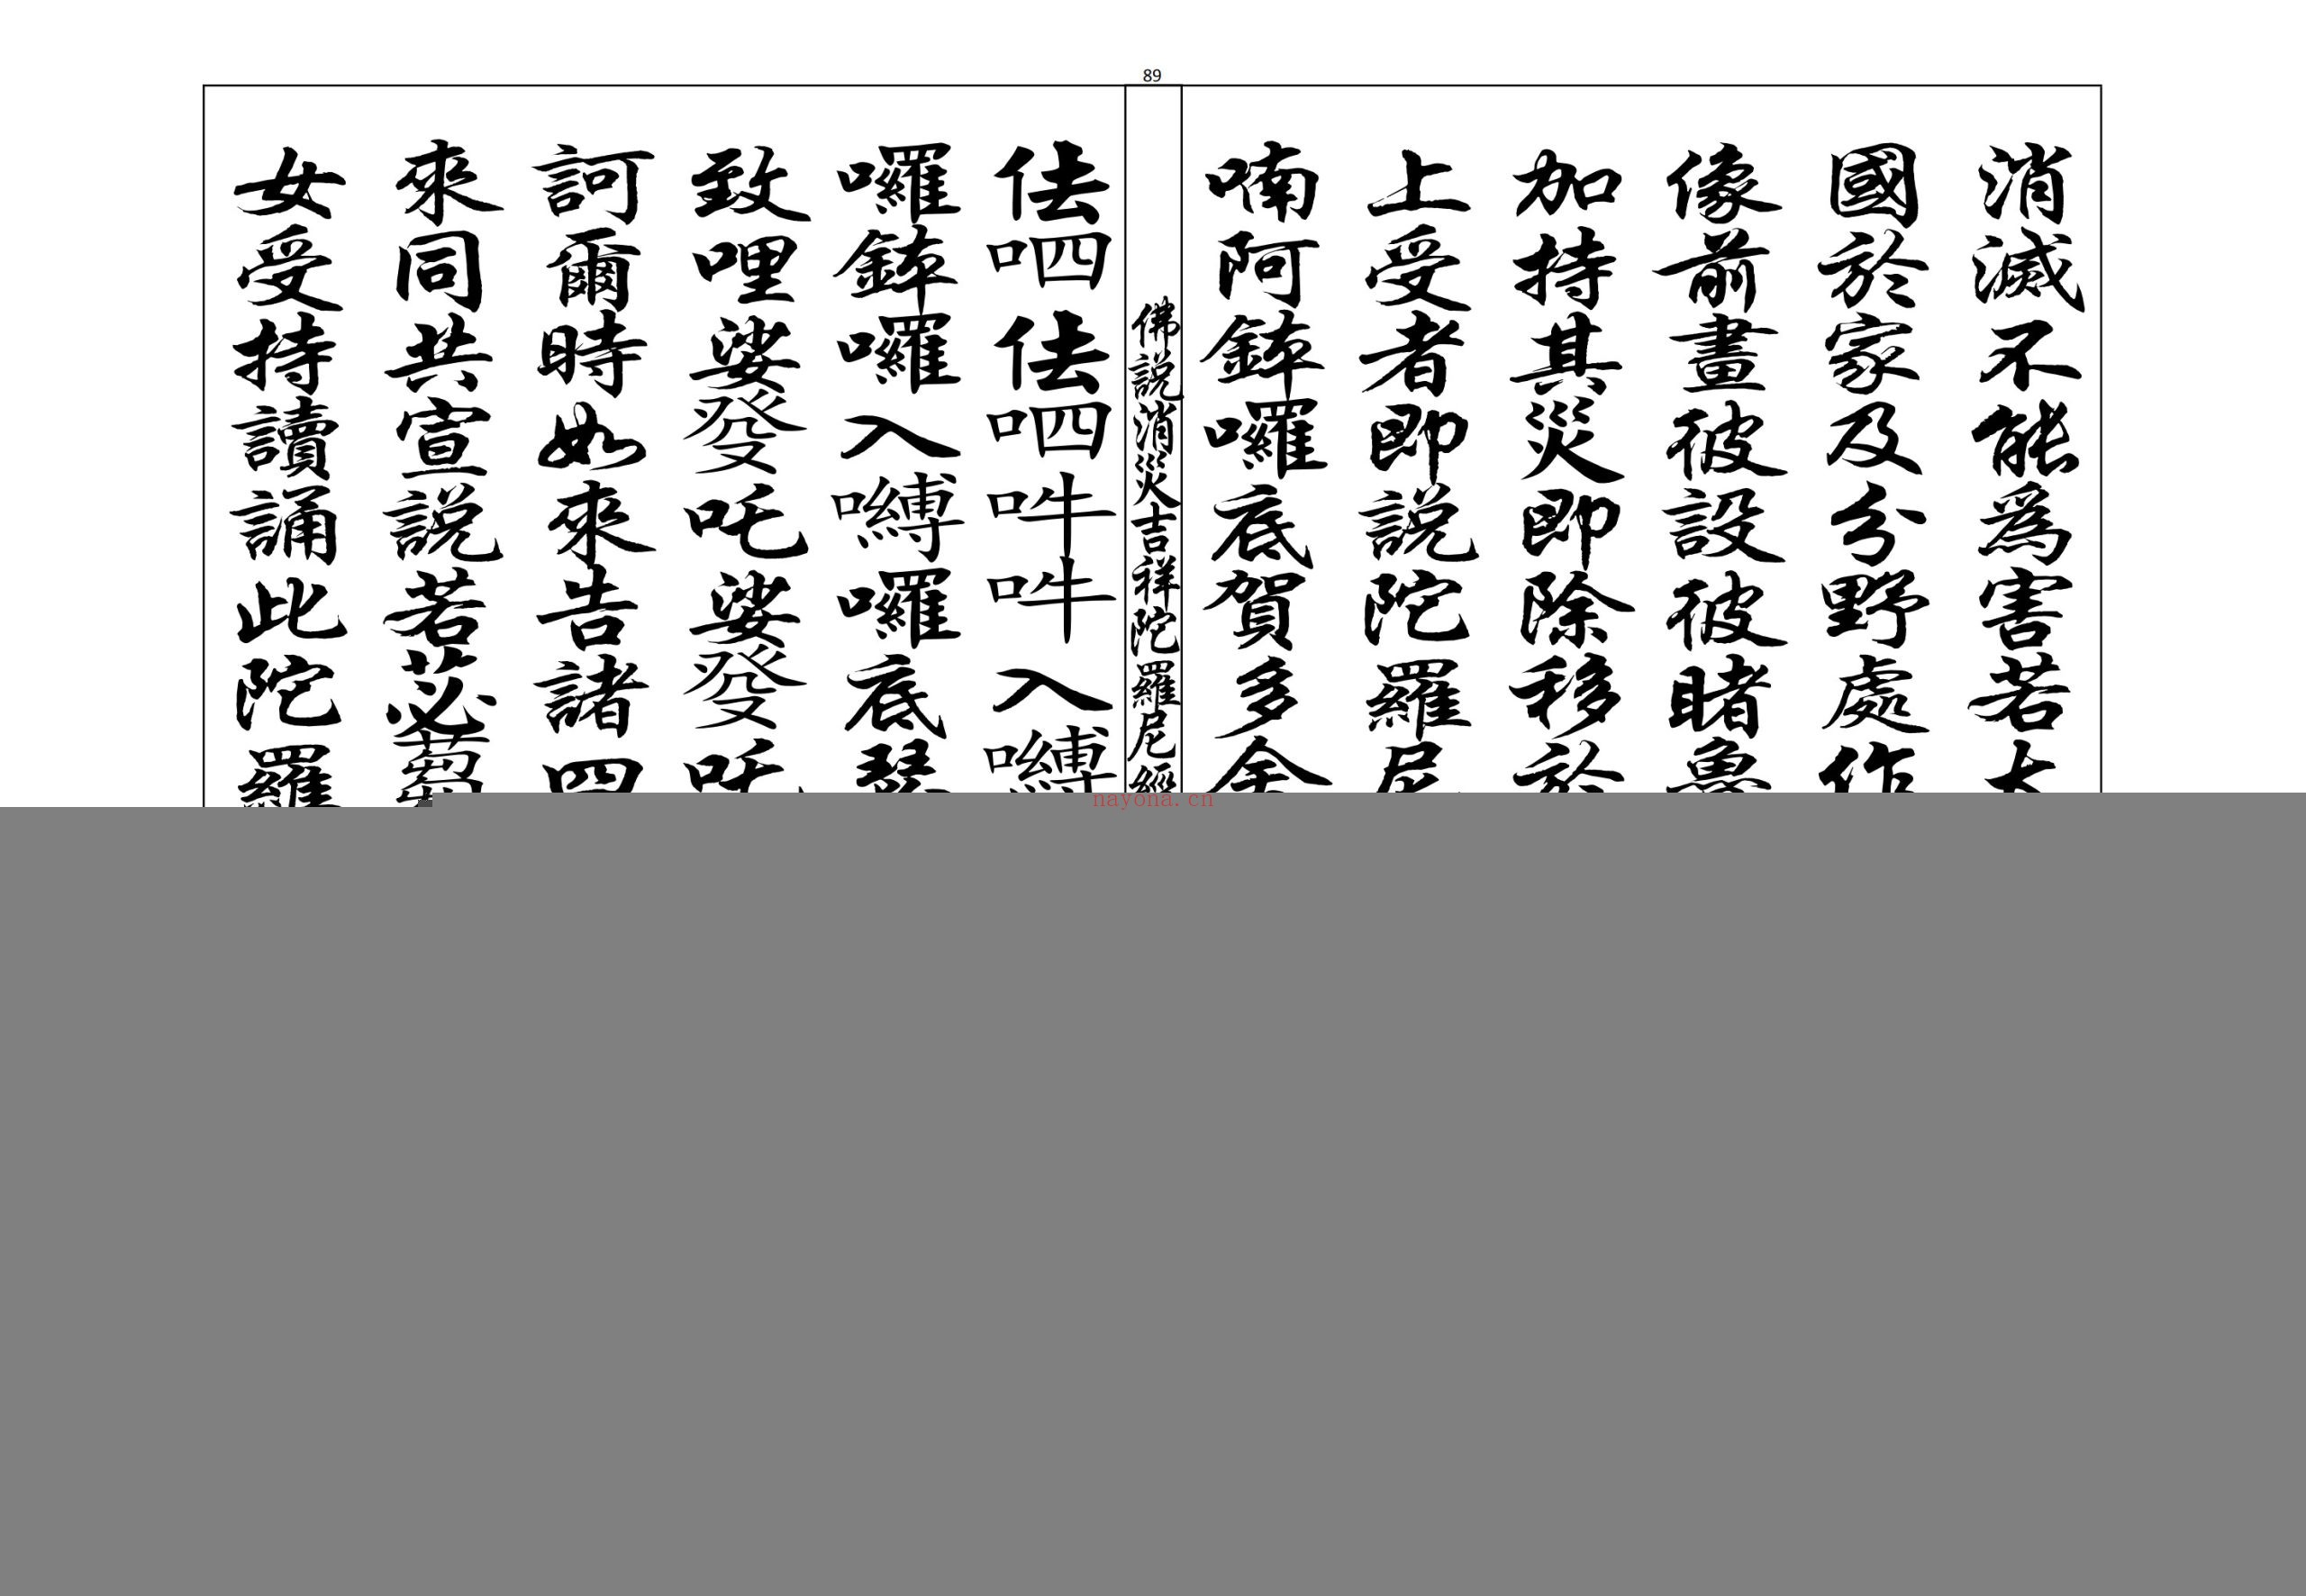 89
消滅不能為害若
國於家及分野處作
像前畫彼設彼睹
加持其災即除移於
上受者即說陀羅尼
喃阿鉢囉底賀多舍
佛說消災吉祥陀羅尼經
佉四佉四吽吽入嚩
囉鉢囉入嚩囉底瑟
致哩娑癹吒娑癹吒
訶爾時如來告諸四
來同共宣說若苾芻
女受持讀誦此陀羅
nayona.cn